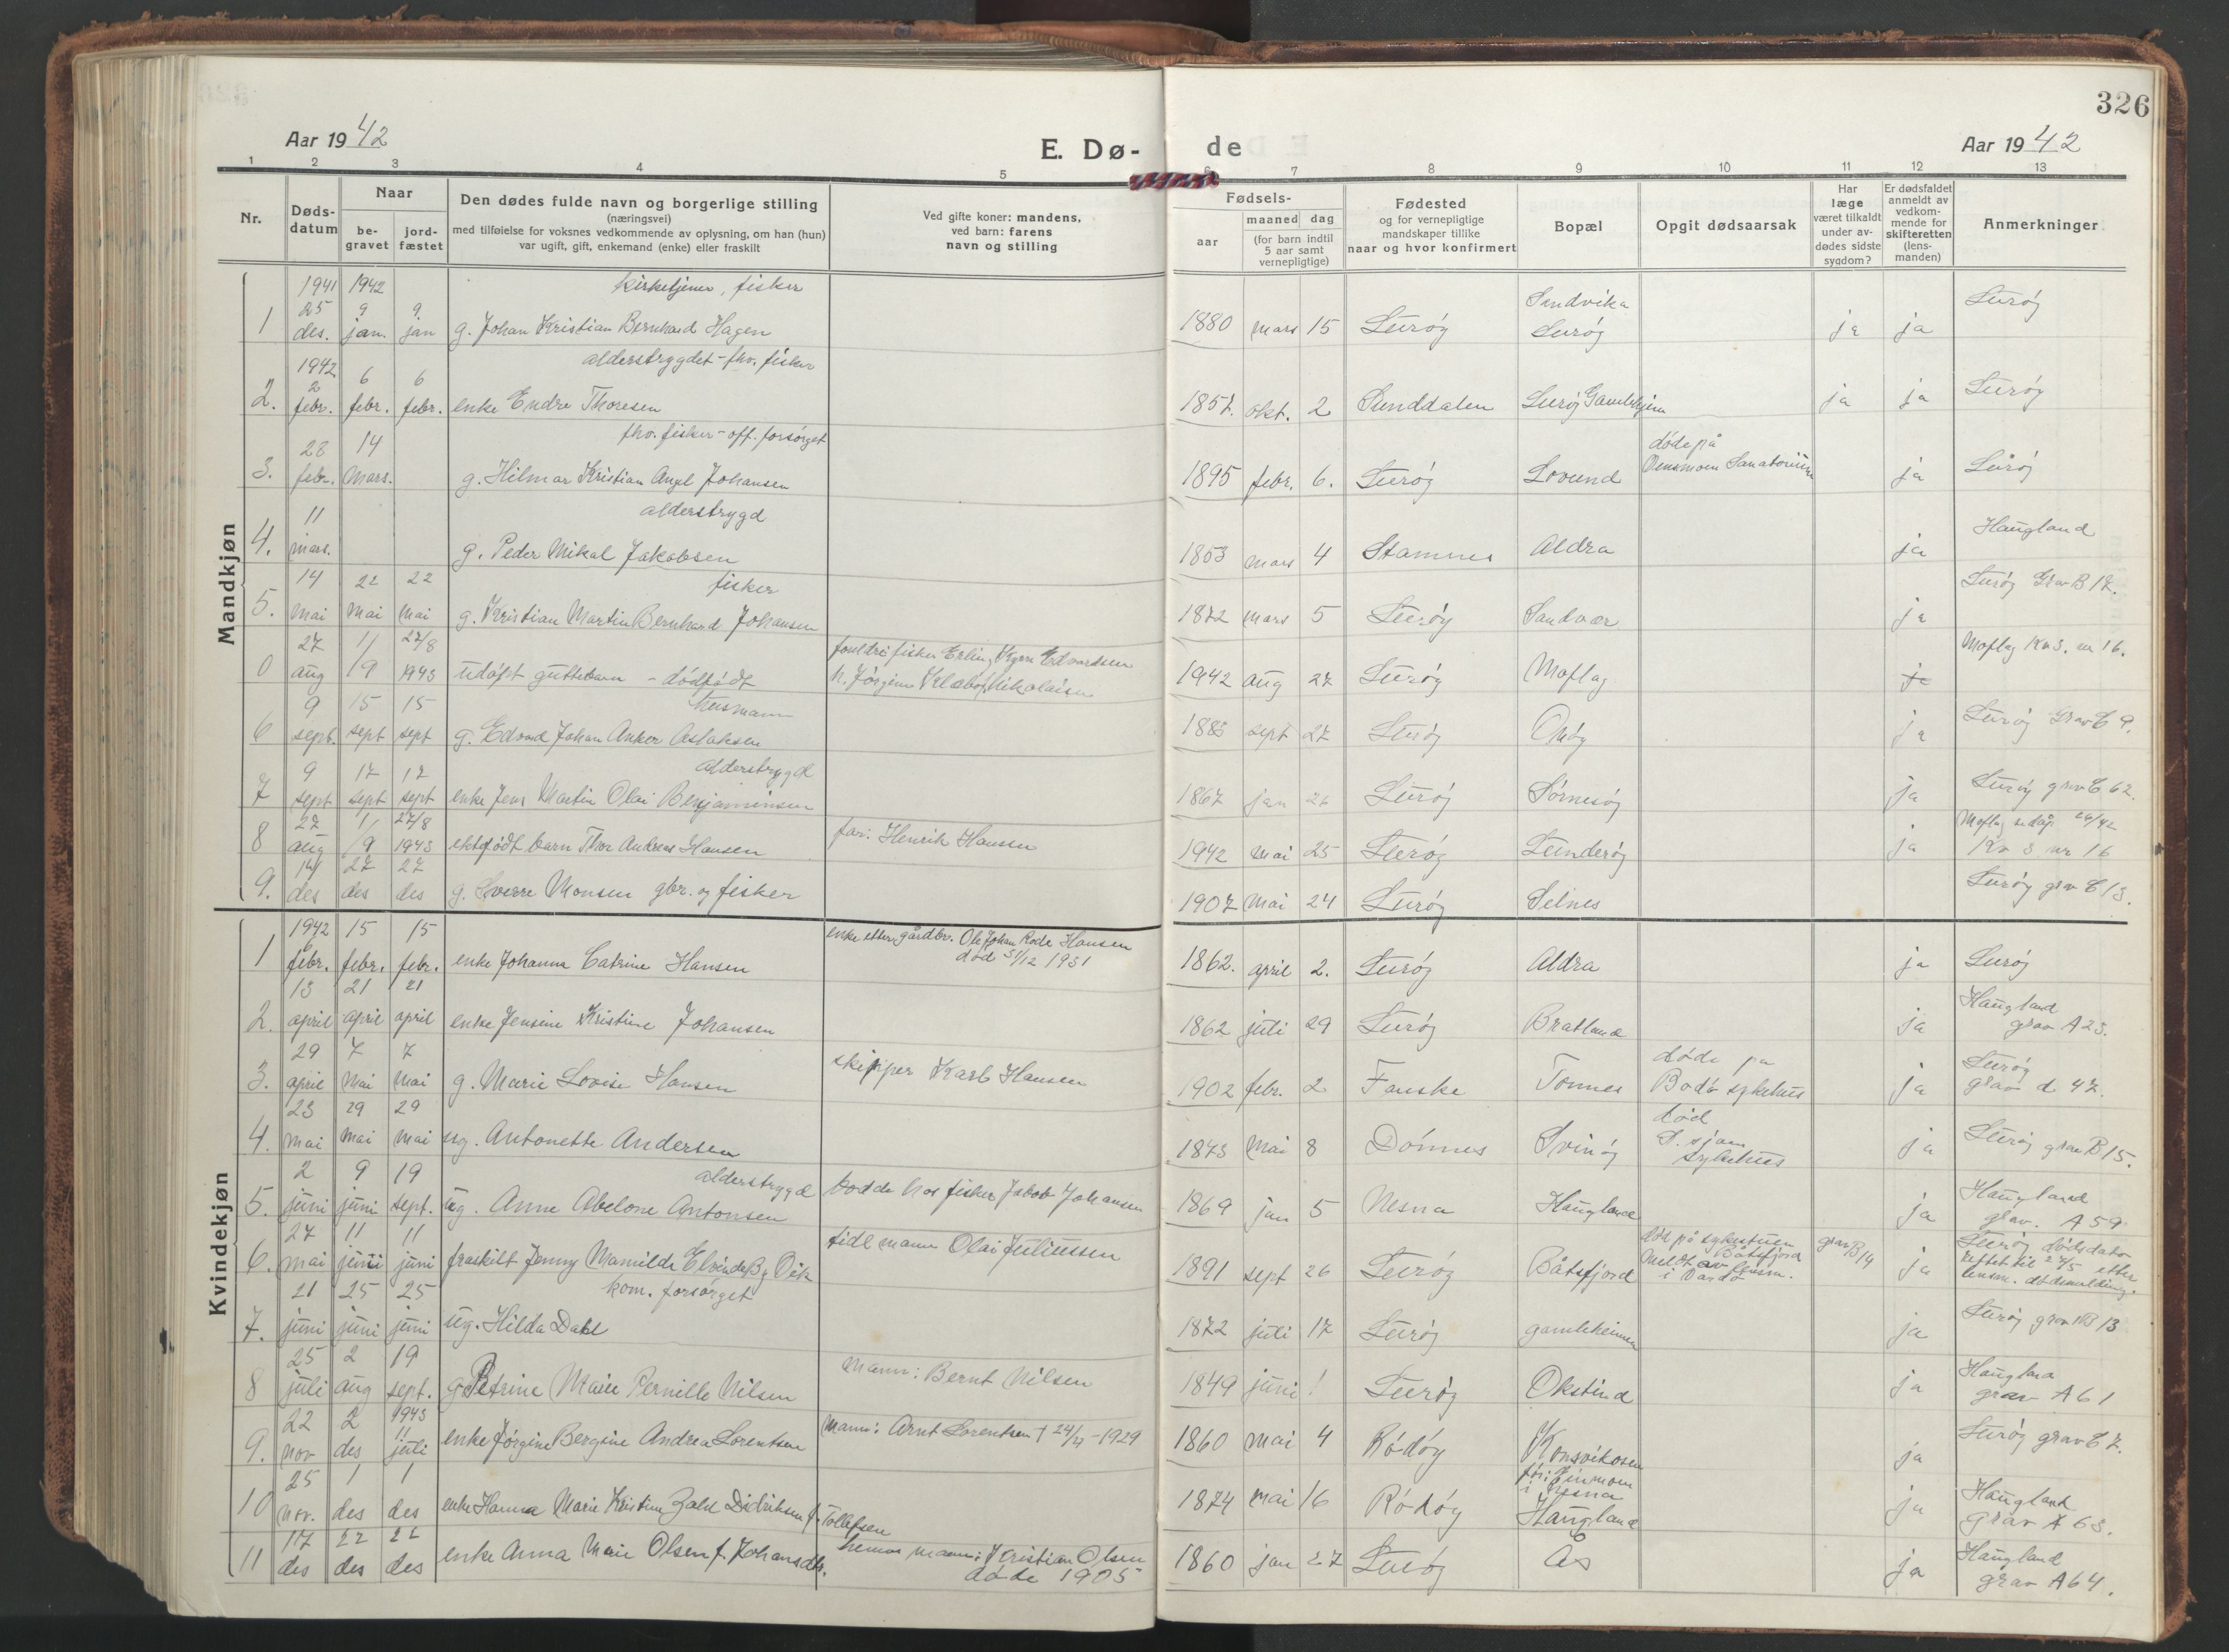 326
Aar 1942
E. Dø-
de
Aar 1942
1 2 3 4 5 6 7 8 9 10 11 12 13
Nr.
Døds-
datum
Naar
be-
gravet
jord-
fæstet
Den dødes fulde navn og borgerlige stilling
(næringsvei)
med tilføielse for voksnes vedkommende av oplysning, om han (hun)
var ugift, gift, enkemand (enke) eller fraskilt
Ved gifte koner: mandens,
ved barn: farens
navn og stilling
Fødsels-
aar
maaned dag
(for barn indtil
5 aar samt
vernepligtige)
Fødested
og for vernepligtige
mandskaper tillike
naar og hvor konfirmert
Bopæl
Opgit dødsaarsak
Har
læge
været tilkaldt
under av-
dødes sidste
sygdom?
Er dødsfaldet
anmeldt av
vedkom-
mende for
skifteretten
(lens-
manden)
Anmerkninger
Mandkjøn
1941 1942 kirketjener, fisker Sandvika Lurøy
1 25 des. 9 jan. 9 jan g. Johan Kristian Bernhard Hagen 1880 mars 15 Lurøy Lurøy ja ja
1942 alderstrygdet - fhv. fisker
2. 2 febr. 6 febr. 6 febr. enke Endre Thoresen 1857. okt. 2 Sunddalen Lurøy Gamlehjem ja ja Lurøy
fhv. fisker - off. forsørget døde på
3. 28 febr. 14 mars. g. Hilmar Kristian Angel Johansen 1895 febr. 6. Lurøy Lovund Sanatorium ja Lurøy
alderstrygd
4. 11 mars. g. Peder Mikal Jakobsen 1853 mars 4 Stamnes Aldra ja Haugland
fisker
5. 14 mai 22 mai 22 mai g. Kristian Martin Bernhard Johansen 1872 mars 5 Lurøy Sandvær ja Lurøy Grav B 12.
foreldre fisker Erling Kyrre Edvardsen
0 27 aug 1/9 27/8 1943 udøpt guttebarn - dødfødt h. Jørgine Nikolaisen 1942 aug 27 Lurøy Moflag ja Moflag Kv 3. nr 16.
husmann
6 9 sept. 15 sept 15 sept g. Edvard Johan Anker Aslaksen 1883 sept 27 Lurøy Onøy ja Lurøy Grav C 9.
alderstrygd
7 9 sept 17 sept 17 sept enke Jens Martin Olai Benjaminsen 1867 jan Lurøy Sørnesøy ja Lurøy grav C 62.
8 27 aug 1/9 27/8 1943 ektefødt barn Thor Andreas Hansen far: Henrik Hansen 1942 mai 25 Lurøy Lunderøy ja Moflag Kv 3 nr 16
9. 14 des 27 des 27 des g. Sverre Monsen gbr. og fisker 1907 mai 24 Lurøy Selnes Lurøy grav C 13.
Kvindekjøn
1942 enke etter gårdbr. Ole Johan Rode Hansen
1 6 febr. 15 febr. 15 febr. enke Johanna Catrine Hansen død 31/12 1931 1862. april 2. Lurøy Aldra ja Lurøy
2. 13 april 21 april 21 april enke Jensine Kristine Johansen 1862 juli 29 Lurøy Bratland ja Haugland grav A 23.
3. 29 april 7 mai 7 mai g. Marie Lovise Hansen skipper Karl Hansen 1902 febr. 2 Fauske Tonnes døde på Bodø sykehus ja Lurøy grav d 47.
4. 23 mai 29 mai 29 mai ug. Antonette Andersen 1873 mai 8 Dønnes Svinøy død S.sjøen sykehus ja Lurøy grav B 15.
alderstrygd
5. 2 juni 9 juni 19 sept. ug. Anne Abelone Antonsen bodde hos fisker Jakob Johansen 1869 jan 5 Nesna Haugland ja Haugland grav. A 59
6. 27 mai 11 juni 11 juni fraskilt Jenny Mamilde tidl mann Olai Juliussen 1891 sept 26 Lurøy Båtsfjord død på sykestuen Båtsfjord meldt av lensm. i Vardø grav B 14 ja Lurøy dødsdato rettet til 27/5 etter lensm. dødsmelding.
kom. forsørget
7. 21 juni 25 juni 25 juni ug. Hilda Dahl 1872 juli 17 Lurøy gamleheimen ja Lurøy grav B 13
8 25 juli 2 aug 19 sept. g. Petrine Marie Pernille Nilsen mann: Bernt Nilsen 1849 juni 1 Lurøy Okstind ja Haugland grav A 61
9. 22 nov 2 des 1943 11 juli enke Jørgine Bergine Andrea Lorentsen mann: Arnt Lorentsen † 24/4 - 1929 1860 mai 4 Rødøy Konsvikosen ja Lurøy grav C 7.
10 25 nov. 1 des 1 des enke Hanna Marie Kristine Zahl Didriksen f. Tollefsen 1874 mai 16 Rødøy før: i Nesna Haugland ja Haugland grav A 63.
11 17 des 22 des 22 des enke Anna Marie Olsen f. Johansdtr. hennes mann: Kristian Olsen døde 1905 1860 jan 27 Lurøy Ås ja Haugland grav A 64.